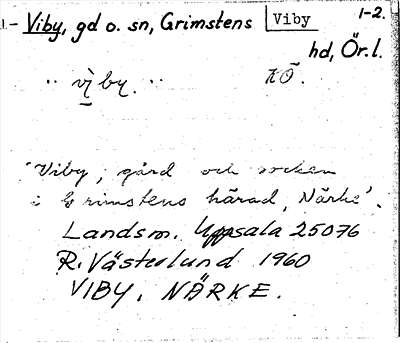 1.- Viby, gd o. sn, Grimstens Viby 1-2.
hd, Ör. l.
" vi̇̀by. " KÖ.
"Viby, gård och socken
i Grimstens härad, Närke".
Landsm. Uppsala 25076
R. Västerlund 1960
VIBY, NÄRKE.